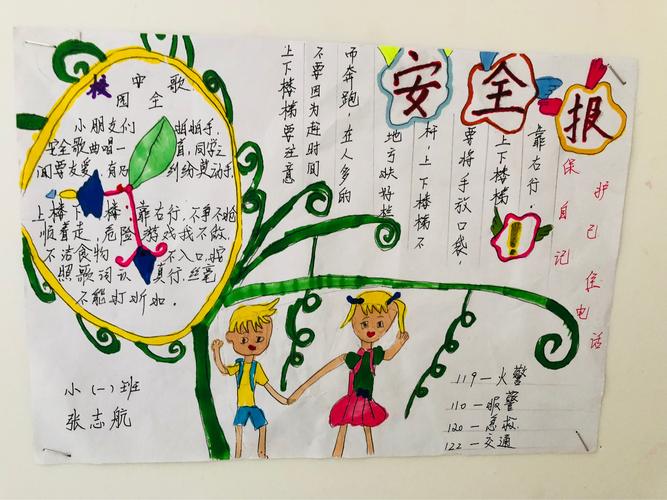 安全报
校 中 歌
园 全
小朋友们 手,
安全歌曲唱一 首,同学之
间要友爱,有 纠纷莫动手
上楼下 楼,靠右行,不争不抢
顺着走,危险游戏我不做,
不洁食物 不入口,按
照歌词认 真行,丝毫
不能打折扣。
上下楼梯要注意
不要因为赶时间
而奔跑,在人多的
地方扶好栏
杆,上下楼梯不
要将手放口袋,
上下楼梯
靠右行,
!
保护自己
记住电话
119—火警
110—报警
120—急救
122—交通
小(一)班
张志航